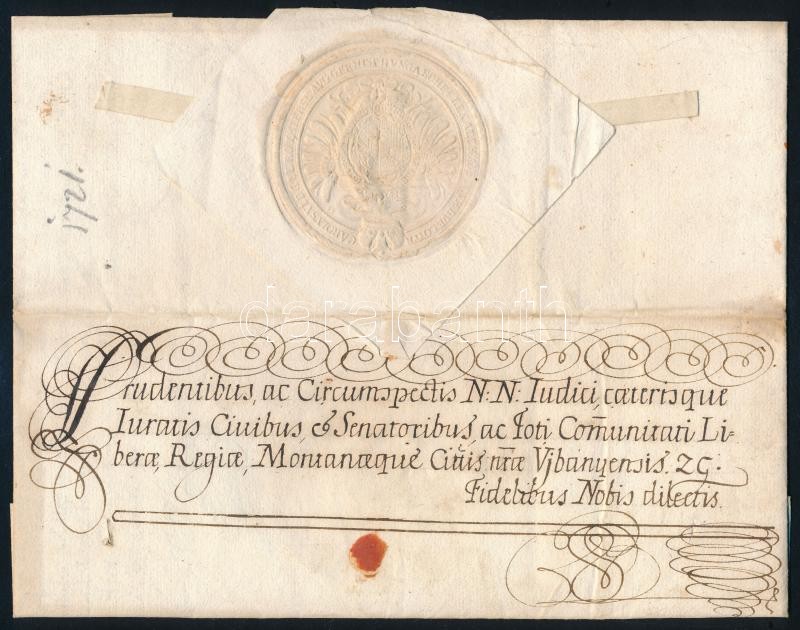 1721.
darabanth
Prudentibus, ac Circumspectis N: N: Iudici, cæterisque
Iuratis Civibus, & Senatoribus, ac Toti Com̅unitati Li-
beræ, Regiæ, Montanæque Citt̃is nr̃æ Vjbanyensis. 2ç.
Fidelibus Nobis dilectis.